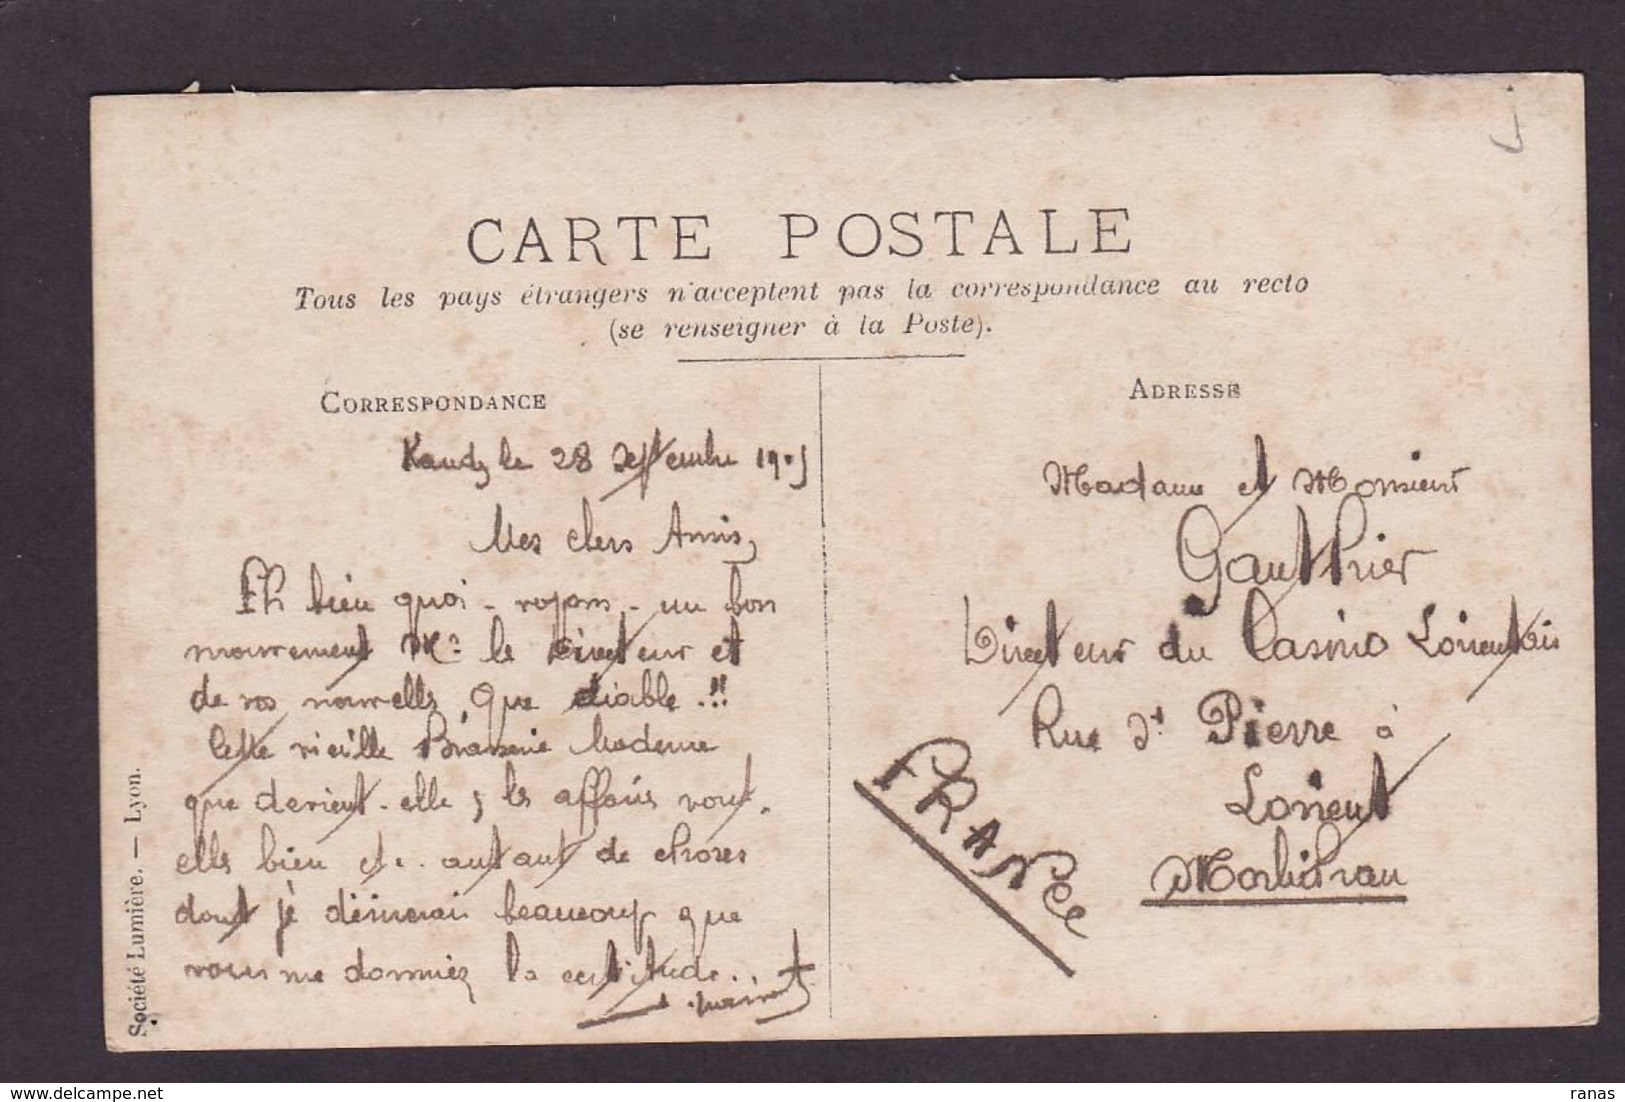 CARTE POSTALE
Tous les pays étrangers n'acceptent pas la correspondance au recto
(se renseigner à la Poste).
CORRESPONDANCE
Kandy le 28 Septembre 1905
Mes chers Amis,
Eh bien quoi - voyons - un bon
mouvement Mr le Directeur et
de vos nouvelles, que diable !!!
Cette vieille Brasserie Moderne
que devient-elle, les affaires vont-
elles bien etc. autant de choses
dont je désirerais beaucoup que
vous me donniez la certitude..
Société Lumière. — Lyon.
ADRESSE
Madame et Monsieur
Gauthier
Directeur du Casino Lorientais
Rue St Pierre à
Lorient
Morbihan
FRANCE
ranas